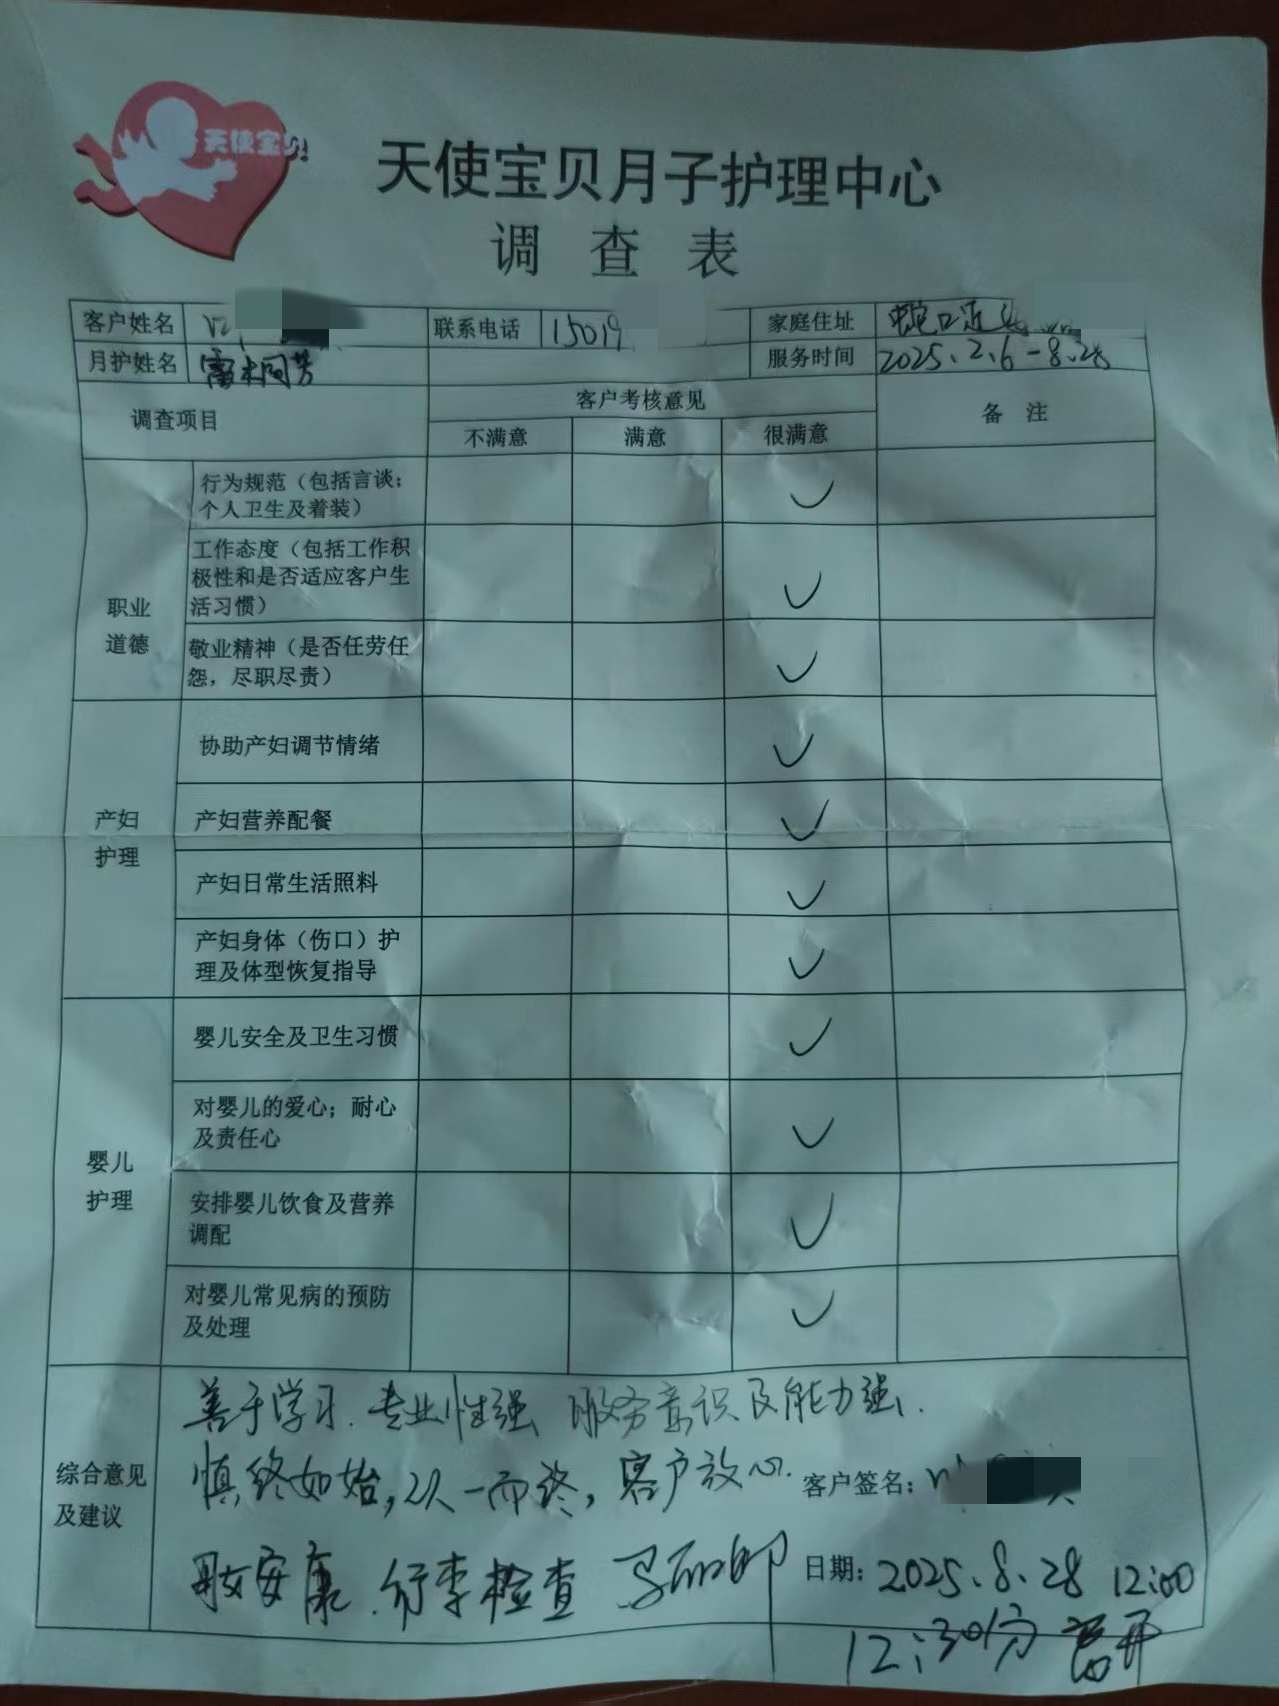 天使宝贝
天使宝贝月子护理中心
调查表
客户姓名 联系电话 15019 家庭住址 蛇口
月护姓名 雷 芳 服务时间 2025.2.6-8.28
调查项目 客户考核意见 备注
不满意 满意 很满意
职业
道德
行为规范（包括言谈；
个人卫生及着装）
工作态度（包括工作积
极性和是否适应客户生
活习惯）
敬业精神（是否任劳任
怨，尽职尽责）
产妇
护理
协助产妇调节情绪
产妇营养配餐
产妇日常生活照料
产妇身体（伤口）护
理及体型恢复指导
婴儿
护理
婴儿安全及卫生习惯
对婴儿的爱心；耐心
及责任心
安排婴儿饮食及营养
调配
对婴儿常见病的预防
及处理
综合意见
及建议
善于学习.专业性强 服务意识及能力强.
慎终如始,以一而终,客户放心. 客户签名：
母女安康.行李检查 日期：2025.8.28 12:00
12:30分离开